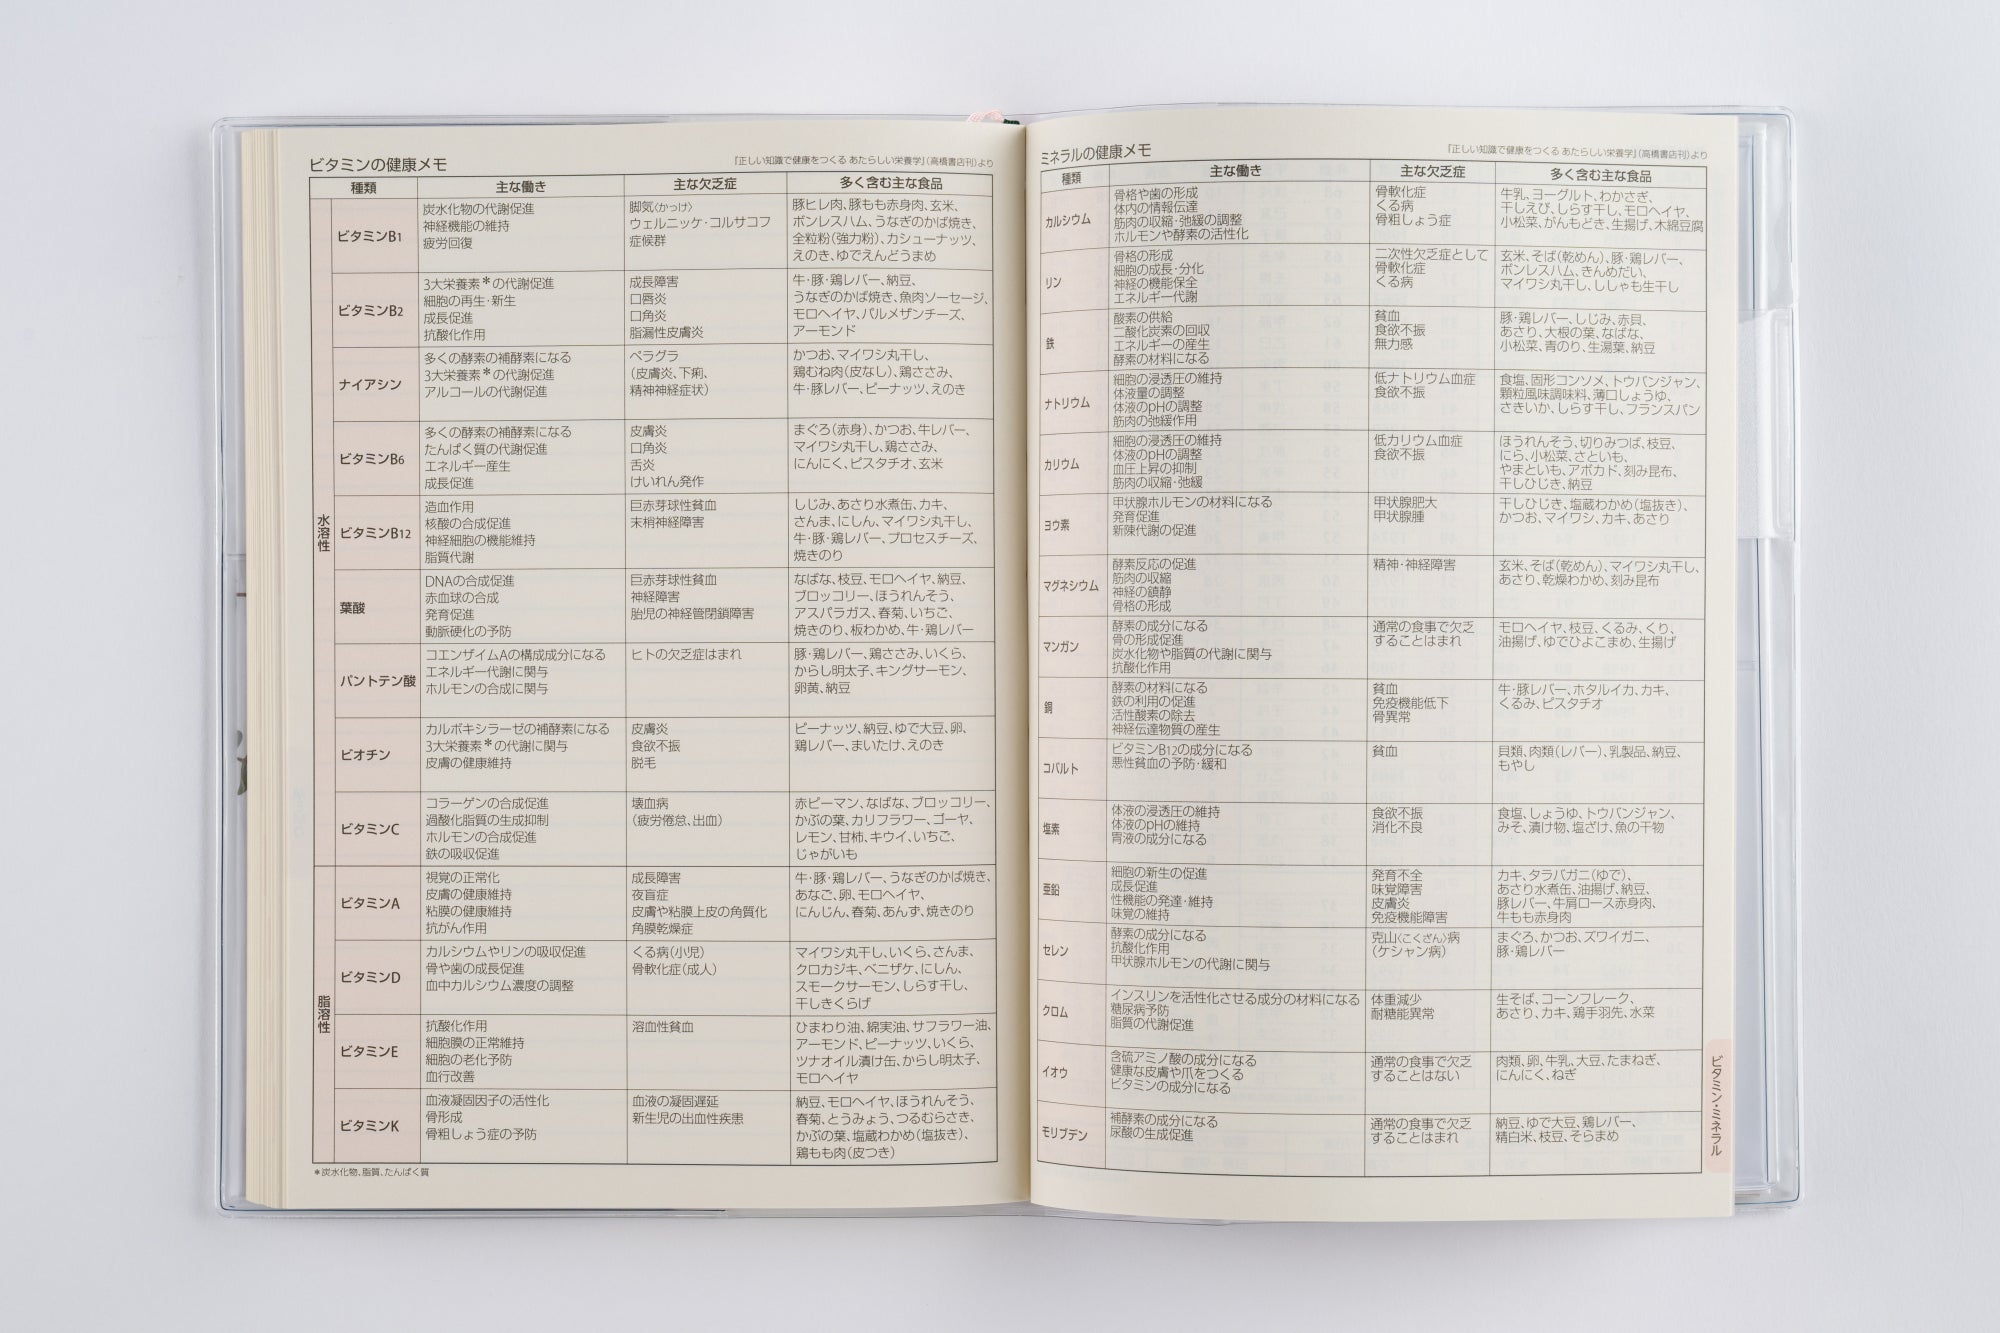 ビタミンの健康メモ
『正しい知識で健康をつくる あたらしい栄養学』(高橋書店刊)より
種類
主な働き
主な欠乏症
多く含む主な食品
水溶性
ビタミンB1
炭水化物の代謝促進
神経機能の維持
疲労回復
脚気〈かっけ〉
ウェルニッケ・コルサコフ
症候群
豚ヒレ肉、豚もも赤身肉、玄米、
ボンレスハム、うなぎのかば焼き、
全粒粉(強力粉)、カシューナッツ、
えのき、ゆでえんどうまめ
ビタミンB2
3大栄養素*の代謝促進
細胞の再生・新生
成長促進
抗酸化作用
成長障害
口唇炎
口角炎
脂漏性皮膚炎
牛・豚・鶏レバー、納豆、
うなぎのかば焼き、魚肉ソーセージ、
モロヘイヤ、パルメザンチーズ、
アーモンド
ナイアシン
多くの酵素の補酵素になる
3大栄養素*の代謝促進
アルコールの代謝促進
ペラグラ
(皮膚炎、下痢、
精神神経症状)
かつお、マイワシ丸干し、
鶏むね肉(皮なし)、鶏ささみ、
牛・豚レバー、ピーナッツ、えのき
ビタミンB6
多くの酵素の補酵素になる
たんぱく質の代謝促進
エネルギー産生
成長促進
皮膚炎
口角炎
舌炎
けいれん発作
まぐろ(赤身)、かつお、牛レバー、
マイワシ丸干し、鶏ささみ、
にんにく、ピスタチオ、玄米
ビタミンB12
造血作用
核酸の合成促進
神経細胞の機能維持
脂質代謝
巨赤芽球性貧血
末梢神経障害
しじみ、あさり水煮缶、カキ、
さんま、にしん、マイワシ丸干し、
牛・豚・鶏レバー、プロセスチーズ、
焼きのり
葉酸
DNAの合成促進
赤血球の合成
発育促進
動脈硬化の予防
巨赤芽球性貧血
神経障害
胎児の神経管閉鎖障害
なばな、枝豆、モロヘイヤ、納豆、
ブロッコリー、ほうれんそう、
アスパラガス、春菊、いちご、
焼きのり、板わかめ、牛・鶏レバー
パントテン酸
コエンザイムAの構成成分になる
エネルギー代謝に関与
ホルモンの合成に関与
ヒトの欠乏症はまれ
豚・鶏レバー、鶏ささみ、いくら、
からし明太子、キングサーモン、
卵黄、納豆
ビオチン
カルボキシラーゼの補酵素になる
3大栄養素*の代謝に関与
皮膚の健康維持
皮膚炎
食欲不振
脱毛
ピーナッツ、納豆、ゆで大豆、卵、
鶏レバー、まいたけ、えのき
ビタミンC
コラーゲンの合成促進
過酸化脂質の生成抑制
ホルモンの合成促進
鉄の吸収促進
壊血病
(疲労倦怠、出血)
赤ピーマン、なばな、ブロッコリー、
かぶの葉、カリフラワー、ゴーヤ、
レモン、甘柿、キウイ、いちご、
じゃがいも
脂溶性
ビタミンA
視覚の正常化
皮膚の健康維持
粘膜の健康維持
抗がん作用
成長障害
夜盲症
皮膚や粘膜上皮の角質化
角膜乾燥症
牛・豚・鶏レバー、うなぎのかば焼き、
あなご、卵、モロヘイヤ、
にんじん、春菊、あんず、焼きのり
ビタミンD
カルシウムやリンの吸収促進
骨や歯の成長促進
血中カルシウム濃度の調整
くる病(小児)
骨軟化症(成人)
マイワシ丸干し、いくら、さんま、
クロカジキ、ベニザケ、にしん、
スモークサーモン、しらす干し、
干しきくらげ
ビタミンE
抗酸化作用
細胞膜の正常維持
細胞の老化予防
血行改善
溶血性貧血
ひまわり油、綿実油、サフラワー油、
アーモンド、ピーナッツ、いくら、
ツナオイル漬け缶、からし明太子、
モロヘイヤ
ビタミンK
血液凝固因子の活性化
骨形成
骨粗しょう症の予防
血液の凝固遅延
新生児の出血性疾患
納豆、モロヘイヤ、ほうれんそう、
春菊、とうみょう、つるむらさき、
かぶの葉、塩蔵わかめ(塩抜き)、
鶏もも肉(皮つき)
*炭水化物、脂質、たんぱく質
ミネラルの健康メモ
『正しい知識で健康をつくる あたらしい栄養学』(高橋書店刊)より
種類
主な働き
主な欠乏症
多く含む主な食品
カルシウム
骨格や歯の形成
体内の情報伝達
筋肉の収縮・弛緩の調整
ホルモンや酵素の活性化
骨軟化症
くる病
骨粗しょう症
牛乳、ヨーグルト、わかさぎ、
干しえび、しらす干し、モロヘイヤ、
小松菜、がんもどき、生揚げ、木綿豆腐
リン
骨格の形成
細胞の成長・分化
神経の機能保全
エネルギー代謝
二次性欠乏症として
骨軟化症
くる病
玄米、そば(乾めん)、豚・鶏レバー、
ボンレスハム、きんめだい、
マイワシ丸干し、ししゃも生干し
鉄
酸素の供給
二酸化炭素の回収
エネルギーの産生
酵素の材料になる
貧血
食欲不振
無力感
豚・鶏レバー、しじみ、赤貝、
あさり、大根の葉、なばな、
小松菜、青のり、生湯葉、納豆
ナトリウム
細胞の浸透圧の維持
体液量の調整
体液のpHの調整
筋肉の弛緩作用
低ナトリウム血症
食欲不振
食塩、固形コンソメ、トウバンジャン、
顆粒風味調味料、薄口しょうゆ、
さきいか、しらす干し、フランスパン
カリウム
細胞の浸透圧の維持
体液のpHの調整
血圧上昇の抑制
筋肉の収縮・弛緩
低カリウム血症
食欲不振
ほうれんそう、切りみつば、枝豆、
にら、小松菜、さといも、
やまといも、アボカド、刻み昆布、
干しひじき、納豆
ヨウ素
甲状腺ホルモンの材料になる
発育促進
新陳代謝の促進
甲状腺肥大
甲状腺腫
干しひじき、塩蔵わかめ(塩抜き)、
かつお、マイワシ、カキ、あさり
マグネシウム
酵素反応の促進
筋肉の収縮
神経の鎮静
骨格の形成
精神・神経障害
玄米、そば(乾めん)、マイワシ丸干し、
あさり、乾燥わかめ、刻み昆布
マンガン
酵素の成分になる
骨の形成促進
炭水化物や脂質の代謝に関与
抗酸化作用
通常の食事で欠乏
することはまれ
モロヘイヤ、枝豆、くるみ、くり、
油揚げ、ゆでひよこまめ、生揚げ
銅
酵素の材料になる
鉄の利用の促進
活性酸素の除去
神経伝達物質の産生
貧血
免疫機能低下
骨異常
牛・豚レバー、ホタルイカ、カキ、
くるみ、ピスタチオ
コバルト
ビタミンB12の成分になる
悪性貧血の予防・緩和
貧血
貝類、肉類(レバー)、乳製品、納豆、
もやし
塩素
体液の浸透圧の維持
体液のpHの維持
胃液の成分になる
食欲不振
消化不良
食塩、しょうゆ、トウバンジャン、
みそ、漬け物、塩ざけ、魚の干物
亜鉛
細胞の新生の促進
成長促進
性機能の発達・維持
味覚の維持
発育不全
味覚障害
皮膚炎
免疫機能障害
カキ、タラバガニ(ゆで)、
あさり水煮缶、油揚げ、納豆、
豚レバー、牛肩ロース赤身肉、
牛もも赤身肉
セレン
酵素の成分になる
抗酸化作用
甲状腺ホルモンの代謝に関与
克山〈こくざん〉病
(ケシャン病)
まぐろ、かつお、ズワイガニ、
豚・鶏レバー
クロム
インスリンを活性化させる成分の材料になる
糖尿病予防
脂質の代謝促進
体重減少
耐糖能異常
生そば、コーンフレーク、
あさり、カキ、鶏手羽先、水菜
イオウ
含硫アミノ酸の成分になる
健康な皮膚や爪をつくる
ビタミンの成分になる
通常の食事で欠乏
することはない
肉類、卵、牛乳、大豆、たまねぎ、
にんにく、ねぎ
モリブデン
補酵素の成分になる
尿酸の生成促進
通常の食事で欠乏
することはまれ
納豆、ゆで大豆、鶏レバー、
精白米、枝豆、そらまめ
ビタミン・ミネラル